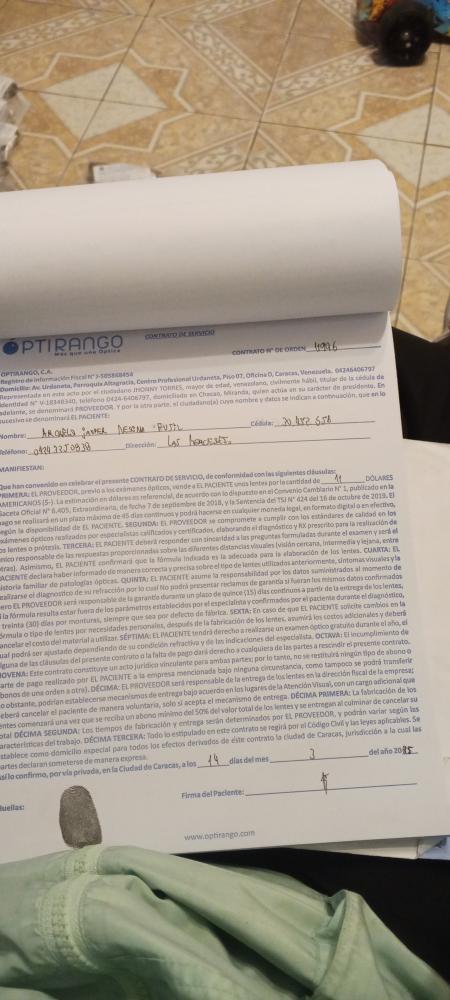 OPTIRANGO
Más que una Óptica
CONTRATO DE SERVICIO
CONTRATO N° DE ORDEN
OPTIRANGO, C.A.
Registro de Información Fiscal N° J-505868454
Domicilio: Av. Urdaneta, Parroquia Altagracia, Centro Profesional Urdaneta, Piso 07, Oficina D, Caracas, Venezuela. 04246406797
Representada en este acto por el ciudadano JHONNY TORRES, mayor de edad, venezolano, civilmente hábil, titular de la cédula de
identidad N° V-18348340, teléfono 0424-6406797, domiciliado en Chacao, Miranda, quien actúa en su carácter de presidente. En
adelante, se denominará PROVEEDOR. Y por la otra parte, el ciudadano(a) cuyo nombre y datos se indican a continuación, que en lo
sucesivo se denominará EL PACIENTE:
Nombre: Cédula:
Teléfono: Dirección: Las
MANIFIESTAN:
Que han convenido en celebrar el presente CONTRATO DE SERVICIO, de conformidad con las siguientes cláusulas:
PRIMERA: EL PROVEEDOR, previo a los exámenes ópticos, vende a EL PACIENTE unos lentes por la cantidad de 11 DÓLARES
AMERICANOS ($-). La estimación en dólares es referencial, de acuerdo con lo dispuesto en el Convenio Cambiario N° 1, publicado en la
Gaceta Oficial N° 6.405, Extraordinaria, de fecha 7 de septiembre de 2018, y la Sentencia del TSJ N° 424 del 16 de octubre de 2019. El
pago se realizará en un plazo máximo de 45 días continuos y podrá hacerse en cualquier moneda legal, en formato digital o en efectivo,
según la disponibilidad de EL PACIENTE. SEGUNDA: EL PROVEEDOR se compromete a cumplir con los estándares de calidad en los
exámenes ópticos realizados por especialistas calificados y certificados, elaborando el diagnóstico y RX prescrito para la realización de
los lentes o prótesis. TERCERA: EL PACIENTE deberá responder con sinceridad a las preguntas formuladas durante el examen y será el
único responsable de las respuestas proporcionadas sobre las diferentes distancias visuales (visión cercana, intermedia y lejana, entre
otras). Asimismo, EL PACIENTE confirmará que la fórmula indicada es la adecuada para la elaboración de los lentes. CUARTA: EL
PACIENTE declara haber informado de manera correcta y precisa sobre el tipo de lentes utilizados anteriormente, síntomas visuales y la
historia familiar de patologías ópticas. QUINTA: EL PACIENTE asume la responsabilidad por los datos suministrados al momento de
realizarse el diagnostico de su refracción por lo cual No podrá presentar reclamos de garantía si fueran los mismos datos confirmados
pero EL PROVEEDOR será responsable de la garantía durante un plazo de quince (15) días continuos a partir de la entrega de los lentes,
si la fórmula resulta estar fuera de los parámetros establecidos por el especialista y confirmados por el paciente durante el diagnóstico,
y treinta (30) días por monturas, siempre que sea por defecto de fábrica. SEXTA: En caso de que EL PACIENTE solicite cambios en la
fórmula o tipo de lentes por necesidades personales, después de la fabricación de los lentes, asumirá los costos adicionales y deberá
cancelar el costo del material a utilizar. SÉPTIMA: EL PACIENTE tendrá derecho a realizarse un examen óptico gratuito durante el año, el
cual podrá ser ajustado dependiendo de su condición refractiva y de las indicaciones del especialista. OCTAVA: El incumplimiento de
alguna de las cláusulas del presente contrato o la falta de pago dará derecho a cualquiera de las partes a rescindir el presente contrato.
NOVENA: Este contrato constituye un acto jurídico vinculante para ambas partes; por lo tanto, no se restituirá ningún tipo de abono o
parte de pago realizado por EL PACIENTE a la empresa mencionada bajo ninguna circunstancia, como tampoco se podrá transferir
(abonos de una orden a otra). DÉCIMA: EL PROVEEDOR será responsable de la entrega de los lentes en la dirección fiscal de la empresa;
no obstante, podrían establecerse mecanismos de entrega bajo acuerdo en los lugares de la Atención Visual, con un cargo adicional que
deberá cancelar el paciente de manera voluntaria, solo si acepta el mecanismo de entrega. DÉCIMA PRIMERA: La fabricación de los
lentes comenzará una vez que se reciba un abono mínimo del 50% del valor total de los lentes y se entregan al culminar de cancelar su
total DÉCIMA SEGUNDA: Los tiempos de fabricación y entrega serán determinados por EL PROVEEDOR, y podrán variar según las
características del trabajo. DÉCIMA TERCERA: Todo lo estipulado en este contrato se regirá por el Código Civil y las leyes aplicables. Se
establece como domicilio especial para todos los efectos derivados de este contrato la ciudad de Caracas, jurisdicción a la cual las
partes declaran someterse de manera expresa.
Así lo confirmo, por vía privada, en la Ciudad de Caracas, a los 14 días del mes 3 del año 20
Huellas: Firma del Paciente:
www.optirango.com